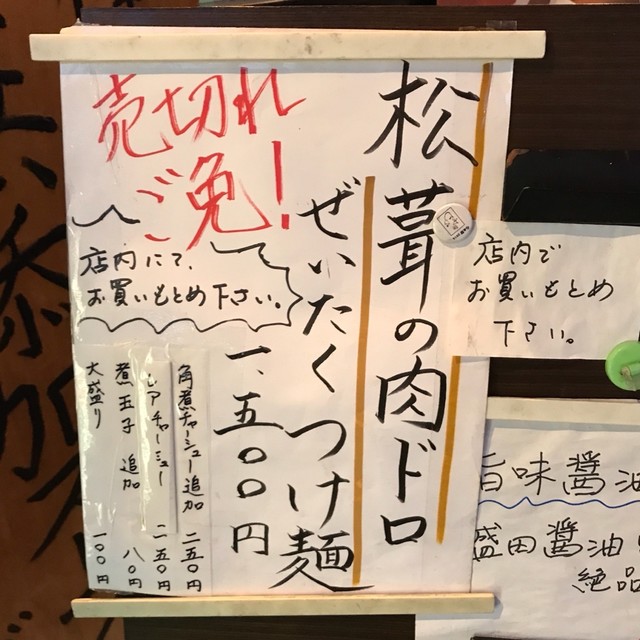 松茸の肉ドロ
ぜいたくつけ麺
一、五〇〇円
売切れ
ご免!
店内にて、
お買いもとめ下さい。
角煮チャーシュー追加 二五〇円
レアチャーシュー 二五〇円
煮玉子 追加 八〇円
大盛り 一〇〇円
店内で
お買いもとめ
下さい。
旨味醤油
盛田醤油
絶品